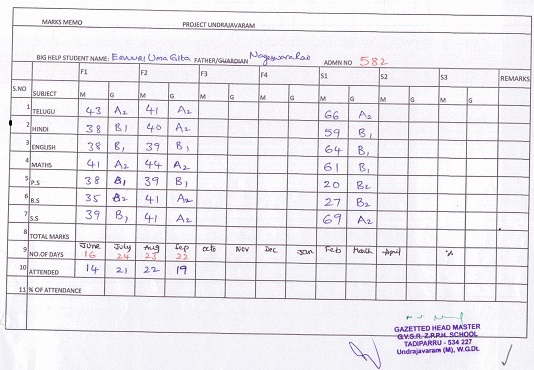 MARKS MEMO PROJECT UNDRAJAVARAM
BIG HELP STUDENT NAME: Eevuri Uma Gita FATHER/GUARDIAN Nageswara Rao ADMN NO 582
F1 F2 F3 F4 S1 S2 S3 REMARKS
S.NO SUBJECT M G M G M G M G M G M G M G
1 TELUGU 43 A2 41 A2 66 A2
2 HINDI 38 B1 40 A2 59 B1
3 ENGLISH 38 B1 39 B1 64 B1
4 MATHS 41 A2 44 A2 61 B1
5 P.S 38 B1 39 B1 20 B2
6 B.S 35 B2 41 A2 27 B2
7 S.S 39 B1 41 A2 69 A2
8 TOTAL MARKS
June July Aug Sep octo Nov Dec Jan Feb March April %
9 NO.OF DAYS 16 24 23 22
10 ATTENDED 14 21 22 19
11 % OF ATTENDANCE
GAZETTED HEAD MASTER
G.V.S.R. Z.P.P.H. SCHOOL
TADIPARRU - 534 227
Undrajavaram (M), W.G.Dt.